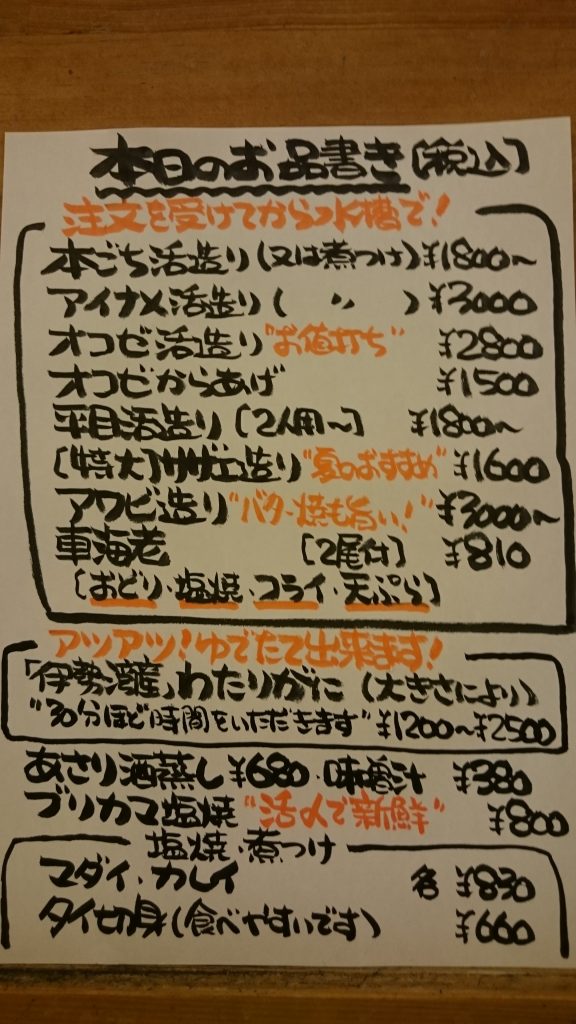 本日のお品書き[税込]
注文を受けてから水槽で!
本ごち活造り(又は煮つけ)¥1800~
アイナメ活造り( 〃 )¥3000
オコゼ活造り"お値打ち" ¥2800
オコゼからあげ ¥1500
平目活造り[2人用~] ¥1800~
[特大]サザエ造り"夏のおすすめ"¥1600
アワビ造り"バター焼も旨い!"¥3000~
車海老 [2尾付] ¥810
[おどり・塩焼・コライ・天ぷら]
アツアツ!ゆでたて出来ます!
「伊勢湾産」わたりがに(大きさにより)
"30分ほど時間をいただきます"¥1200~¥2500
あさり酒蒸し¥680・味噌汁 ¥380
ブリカマ塩焼"活〆で新鮮" ¥800
塩焼・煮つけ
マダイ・カレイ 各 ¥830
タイ切身(食べやすいです) ¥660